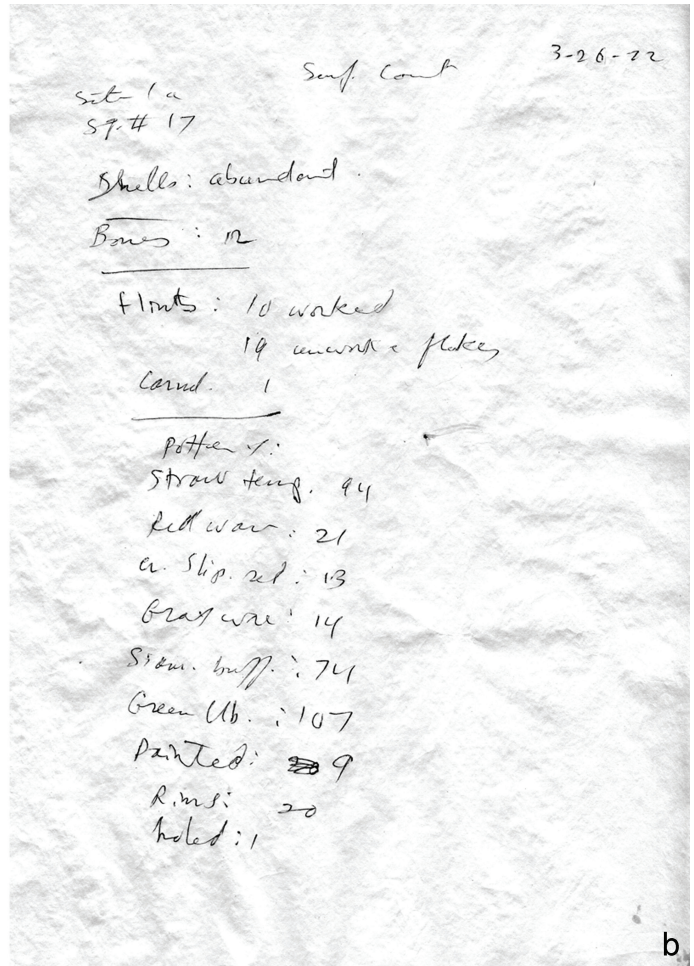 3-26-72
Surf. Count
Site 1a
Sq. # 17
Shells: abundant.
Bones: 12
flints: 10 worked
19 unworke flakes
Carnel. 1
Pottery:
Straw temp. 94
Red ware: 21
cr. Slip. red: 13
Gray ware: 14
buff.: 74
Green Ub.: 107
Painted: 9
Rims: 20
holed: 1
b